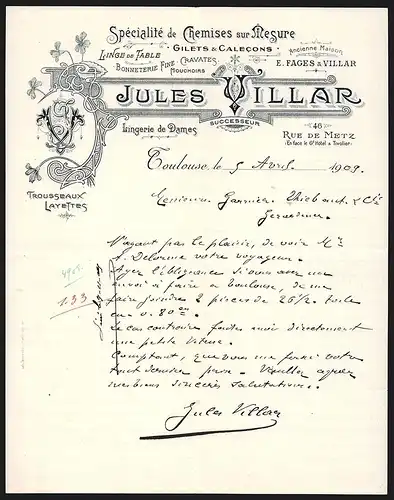 Spécialité de Chemises sur Mesure
GILETS & CALEÇONS
LINGE DE TABLE
CRAVATES
BONNETERIE FINE
MOUCHOIRS
Ancienne Maison
E. FAGES & VILLAR
JULES VILLAR
SUCCESSEUR
Lingerie de Dames
46
RUE DE METZ
(En face le Gd Hôtel & Tivollier)
TROUSSEAUX
LAYETTES
Toulouse, le 5 Avril 1909.
Messieurs Garnier Thiebaut & Cie
Gerardmer
N'ayant pas le plaisir, de voir Mr
Delorme votre voyageur.
Ayez l'obligeance si vous avez un
envoi à faire a Toulouse, de me
faire joindre 2 pièces de toile
80
Le cas contraire faites envoi directement
une petite vitesse.
Comptant, que vous me ferez votre
tout dernier prix. Veuillez agréer
mes bien sincères salutations.
Jules Villar
133